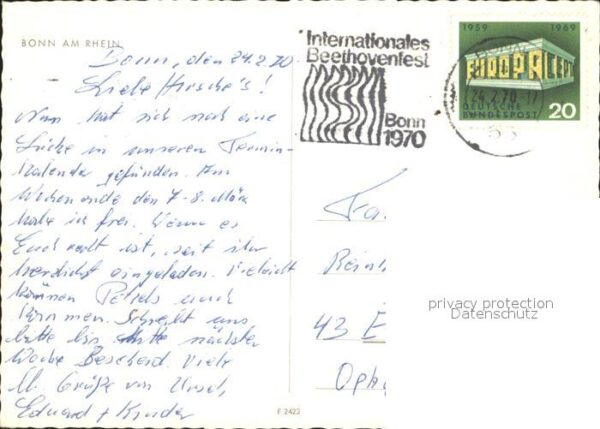 BONN AM RHEIN
Bonn, den 24.2.70
Liebe Hirsche's!
Nun hat sich noch eine
Lücke in unseren Termin-
kalender gefunden. Am
Wochenende den 7-8. März
habe ich frei. Wenn es
Euch recht ist, seit ihr
herzlichst eingeladen. Vieleicht
können Petrels auch
kommen. Schreibt uns
bitte bis Mitte nächster
Woche Bescheid. Viele
Grüße von
Eduard + Kinder
F 2423
Internationales
Beethovenfest
Bonn
1970
1959 1969
EUROPA CEPT
DEUTSCHE
BUNDESPOST
20
24.2.70
53
Fa.
Rein
43 E
Oph
privacy protection
Datenschutz